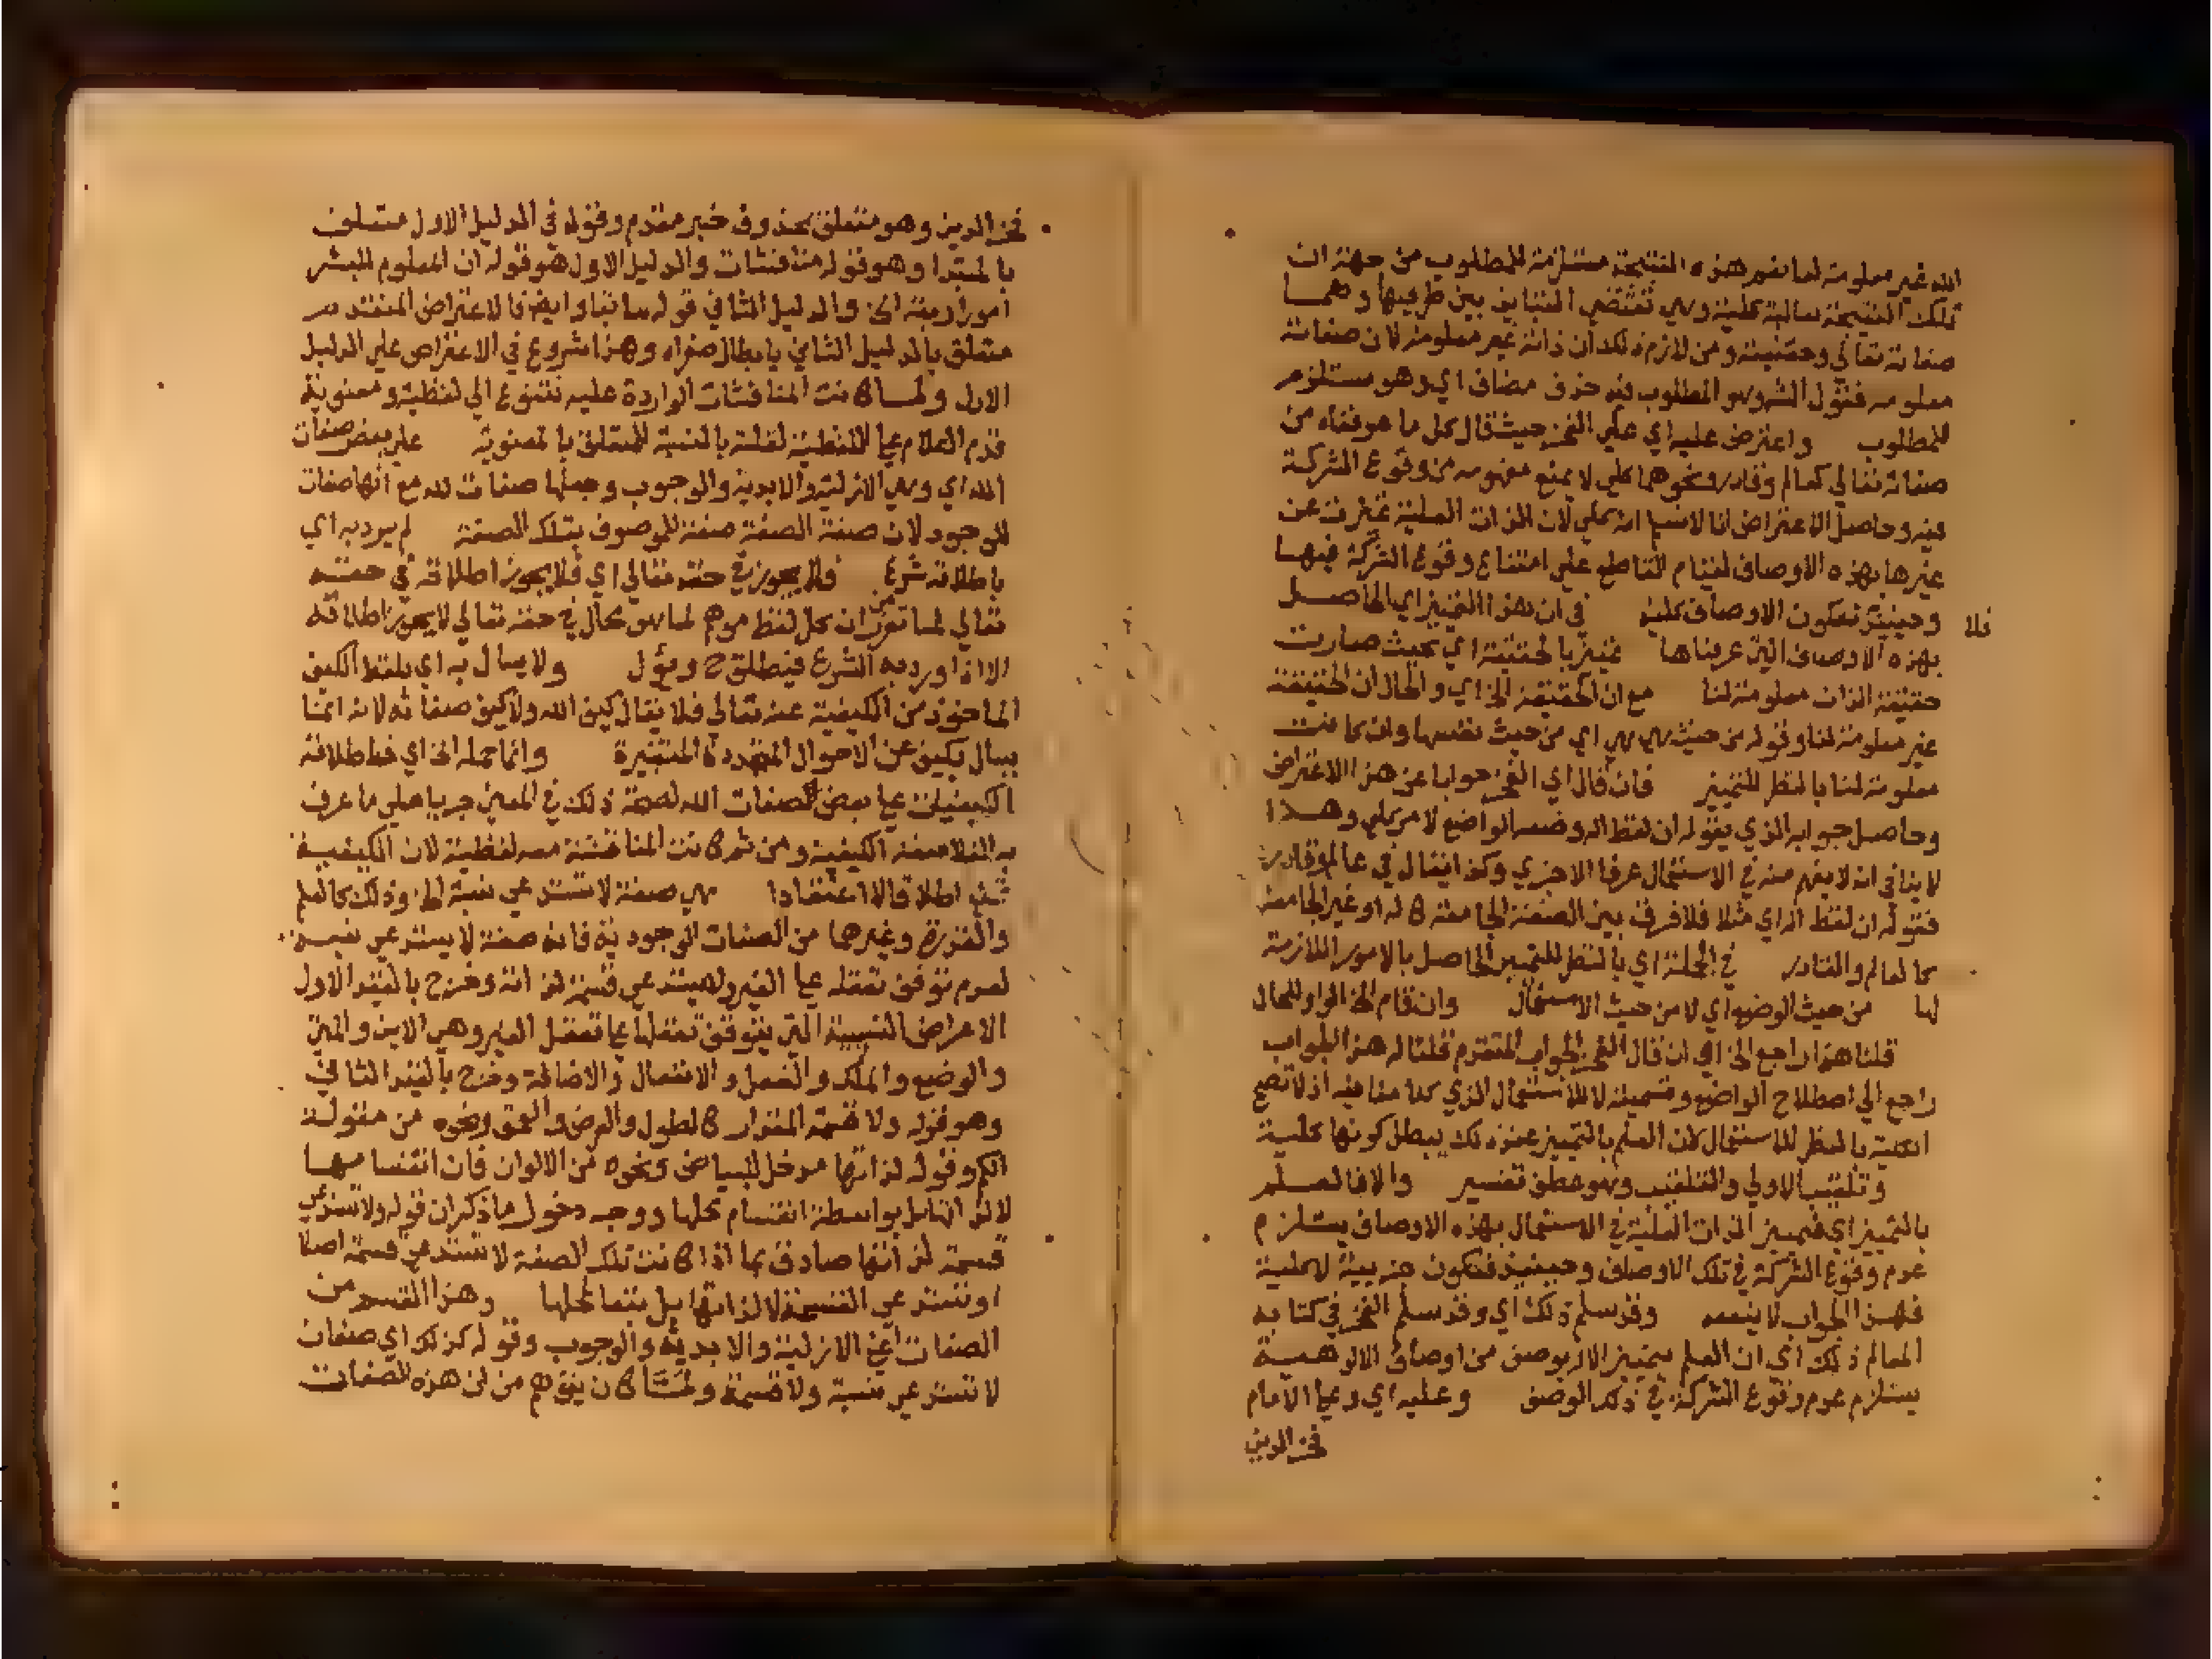 الله غير معلومة لما نعم هذه النتيجة مستلزمة للمطلوب من جهة ان
تلك النتيجة سالبة كلية وهي تقتضي التباين بين طرفيها وهما
صفاته تعالى وحقيقته ومن لازم ذلك ان ذاته غير معلومة لان صفاته
معلومه فقول الش وهو المطلوب فيه حذف مضاف اي وهو مستلزم
للمطلوب واعترض عليه اي على الفخر حيث قال كل ما عرفناه من
صفاته تعالى كعالم وقادر ونحوهما كلي لا يمنع مفهومه من وقوع الشركة
فيه وحاصل الاعتراض انا لا نسلم انه كلي لان الذات العلية تميزت عن
غيرها بهذه الاوصاف لقيام القاطع على امتناع وقوع الشركة فيها
وحينئذ تكون الاوصاف كلية في ان هذا التمييز اي الحاصل
فلا
بهذه الاوصاف التي عرفناها تمييز بالحقيقة اي بحيث صارت
حقيقة الذات معلومة لنا مع ان الحقيقة الخ اي والحال ان الحقيقة
غير معلومة لنا وقوله من حيث هي هي اي من حيث نفسها وان كانت
معلومة لنا بالنظر للتمييز فان قال اي الفخر جوابا عن هذا الاعتراض
وحاصل جوابه الذي يقوله ان لفظ اله وضعه الواضع لامر كلي وهذا
لا ينافي انه لا يفهم منه في الاستعمال عرفا الا جزي وكذا يقال في عالم وقادر
فقوله ان لفظ اله اي مثلا فلا فرق بين الصفة الجامعة كاله او غير الجامعة
كالعالم والقادر في الجملة اي بالنظر للتمييز الحاصل بالامور اللازمة
لها من حيث الوضع اي لا من حيث الاستعمال وان قام الخ الواو للحال
قلنا هذا راجع الخ اي ان قال الفخر الجواب المتقدم قلنا له هذا الجواب
راجع الى اصطلاح الواضع وتسميته لا للاستعمال الذي كلامنا فيه اذ لا تصح
الكلية بالنظر للاستعمال لان العلم بالتمييز عند ذلك يبطل كونها كلية
وتلقيب الاولى والتلقيب وهو عطف تفسير والا فالعلم
بالتمييز اي فتمييز الذات العلية في الاستعمال بهذه الاوصاف يستلزم
عدم وقوع الشركة في تلك الاوصاف وحينئذ فتكون جزيية لا كلية
فهذا الجواب لا ينفعه وقد سلم ذلك اي وقد سلم الفخر في كتابه
المعالم ذلك اي ان العلم بتمييز الاله بوصف من اوصاف الالوهية
يستلزم عدم وقوع الشركة في ذلك الوصف وعليه اي وعلى الامام
فخر الدين
فخر الدين وهو متعلق بمحذوف خبر مقدم وقوله في الدليل الاول متعلق
بالمبتدا وهو قوله مناقشات والدليل الاول هو قوله ان المعلوم للبشر
امور اربعة الخ والدليل الثاني قوله سابقا وايضا فالاعتراض المتقدم
متعلق بالدليل الثاني بابطال صغراه وهذا شروع في الاعتراض على الدليل
الاول ولما كانت المناقشات الواردة عليه تتنوع الى لفظية ومعنوية
قدم الكلام على اللفظية لقلته بالنسبة للمتعلق بالمعنوية على بعض صفات
الله اي وهي الازلية والابدية والوجوب وجعلها صفات لله مع انها صفات
للوجود لان صفة الصفة صفة للموصوف بتلك الصفة لم يرد به اي
باطلاقه شرع فلا يجوز في حقه تعالى اي فلا يجوز اطلاقه في حقه
تعالى لما تقرر من ان كل لفظ موهم لما هو محال في حقه تعالى لا يجوز اطلاقه
الا اذا ورد به الشرع فيطلق ح ويؤل ولا يسال به اي بلفظ الكيف
الماخوذ من الكيفية عنه تعالى فلا يقال كيف الله ولا كيف صفاته لانه انما
يسال بكيف عن الاحوال المتجددة المتغيرة وانما حمله الخ اي فاطلاقه
الكيفيات على بعض صفات الله لصحة ذلك في المعنى جريا على ما عرف
به الفلاسفة الكيفية ومن ثم كانت المناقشة معه لفظية لان الكيفية
تمتنع اطلاقا لا اعتقادا هي صفة لا تستدعي نسبة الخ وذلك كالعلم
والقدرة وغيرهما من الصفات الوجودية فانه صفة لا يستدعي نسبة
لعدم توقف تعقله على الغير ولا يستدعي قسمة لذاته وخرج بالقيد الاول
الاعراض النسبية التي يتوقف تعقلها على تعقل الغير وهي الاين والمتى
والوضع والملك والفعل والانفعال والاضافة وخرج بالقيد الثاني
وهو قوله ولا قسمة المقدار كالطول والعرض والعمق ونحوه من مقولة
الكم وقوله لذاتها مدخل للبياض ونحوه من الالوان فان انقسامها
لا لذاتها بل بواسطة انقسام محلها ووجه دخول ما ذكر ان قوله ولا تستدعي
قسمة لذاتها صادق بما اذا كانت تلك الصفة لا تستدعي قسمة اصلا
او تستدعي القسمة لا لذاتها بل تبعا لمحلها وهذا القسم من
الصفات اعني الازلية والابدية والوجوب وقوله كذلك اي صفات
لا تستدعي نسبة ولا قسمة ولما كان يتوهم من ان هذه الصفات